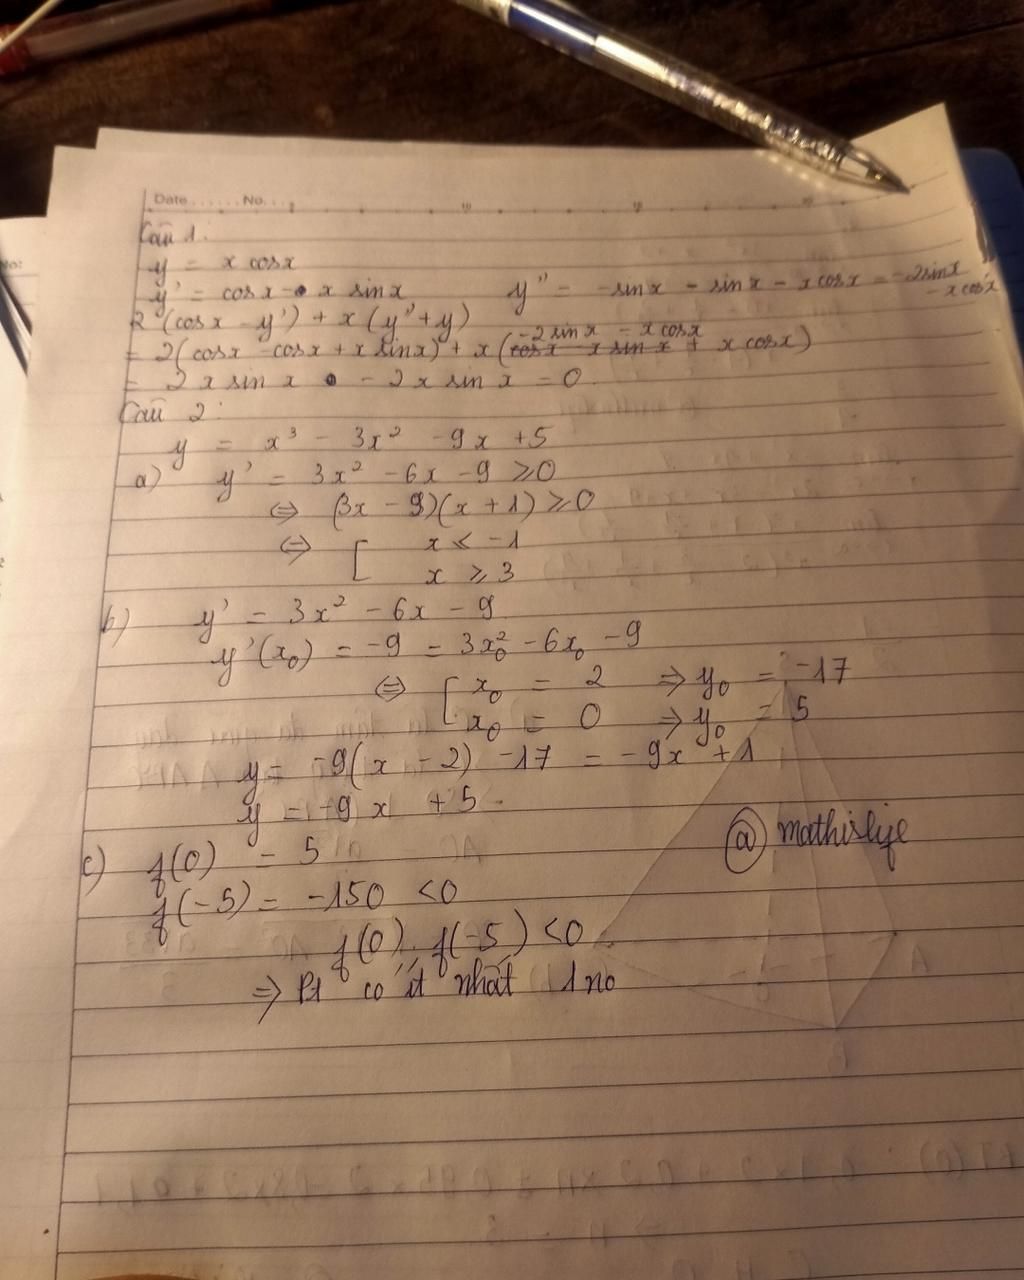 Date ...... No. ...
10 15 20
Câu 1:
y = x cosx
y' = cosx - x sinx y'' = -sinx - sinx - xcosx = -2sinx - xcosx
2(cosx - y') + x(y'' + y)
= 2(cosx - cosx + x sinx) + x(-2sinx - xcosx + x cosx)
= 2x sin x - 2x sin x = 0.
Câu 2:
y = x³ - 3x² - 9x + 5
a) y' = 3x² - 6x - 9 ⩾ 0
⇔ (3x - 9)(x + 1) ⩾ 0
⇔ [ x < -1
x ⩾ 3
b) y' = 3x² - 6x - 9
y'(x₀) = -9 = 3x₀² - 6x₀ - 9
⇔ [ x₀ = 2 ⇒ y₀ = -17
x₀ = 0 ⇒ y₀ = 5
y = -9(x - 2) - 17 = -9x + 1
y = -9x + 5.
c) f(0) = 5
f(-5) = -150 < 0
@mathislife
f(0).f(-5) < 0
⇒ Pt có ít nhất 1 no